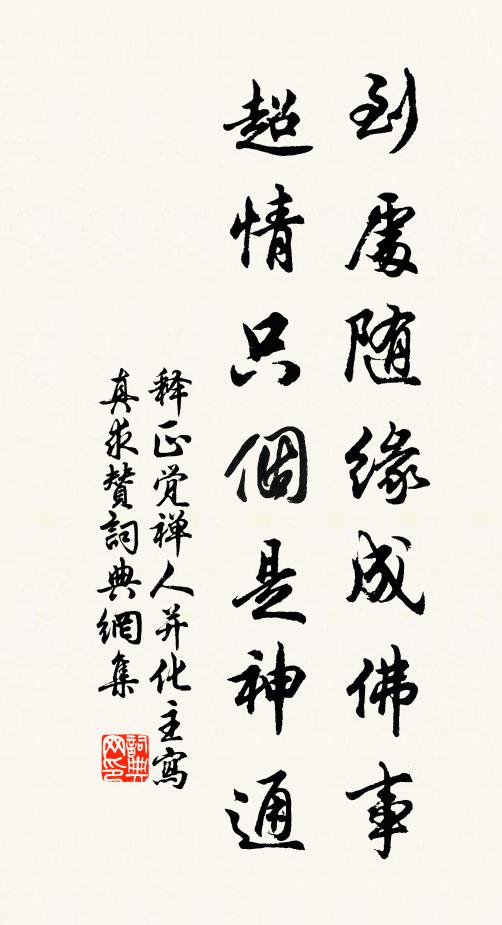 到處随緣成佛事
超情只個是神通
释正觉禅人并化主寫
真求贊詞典網集
詞典网印